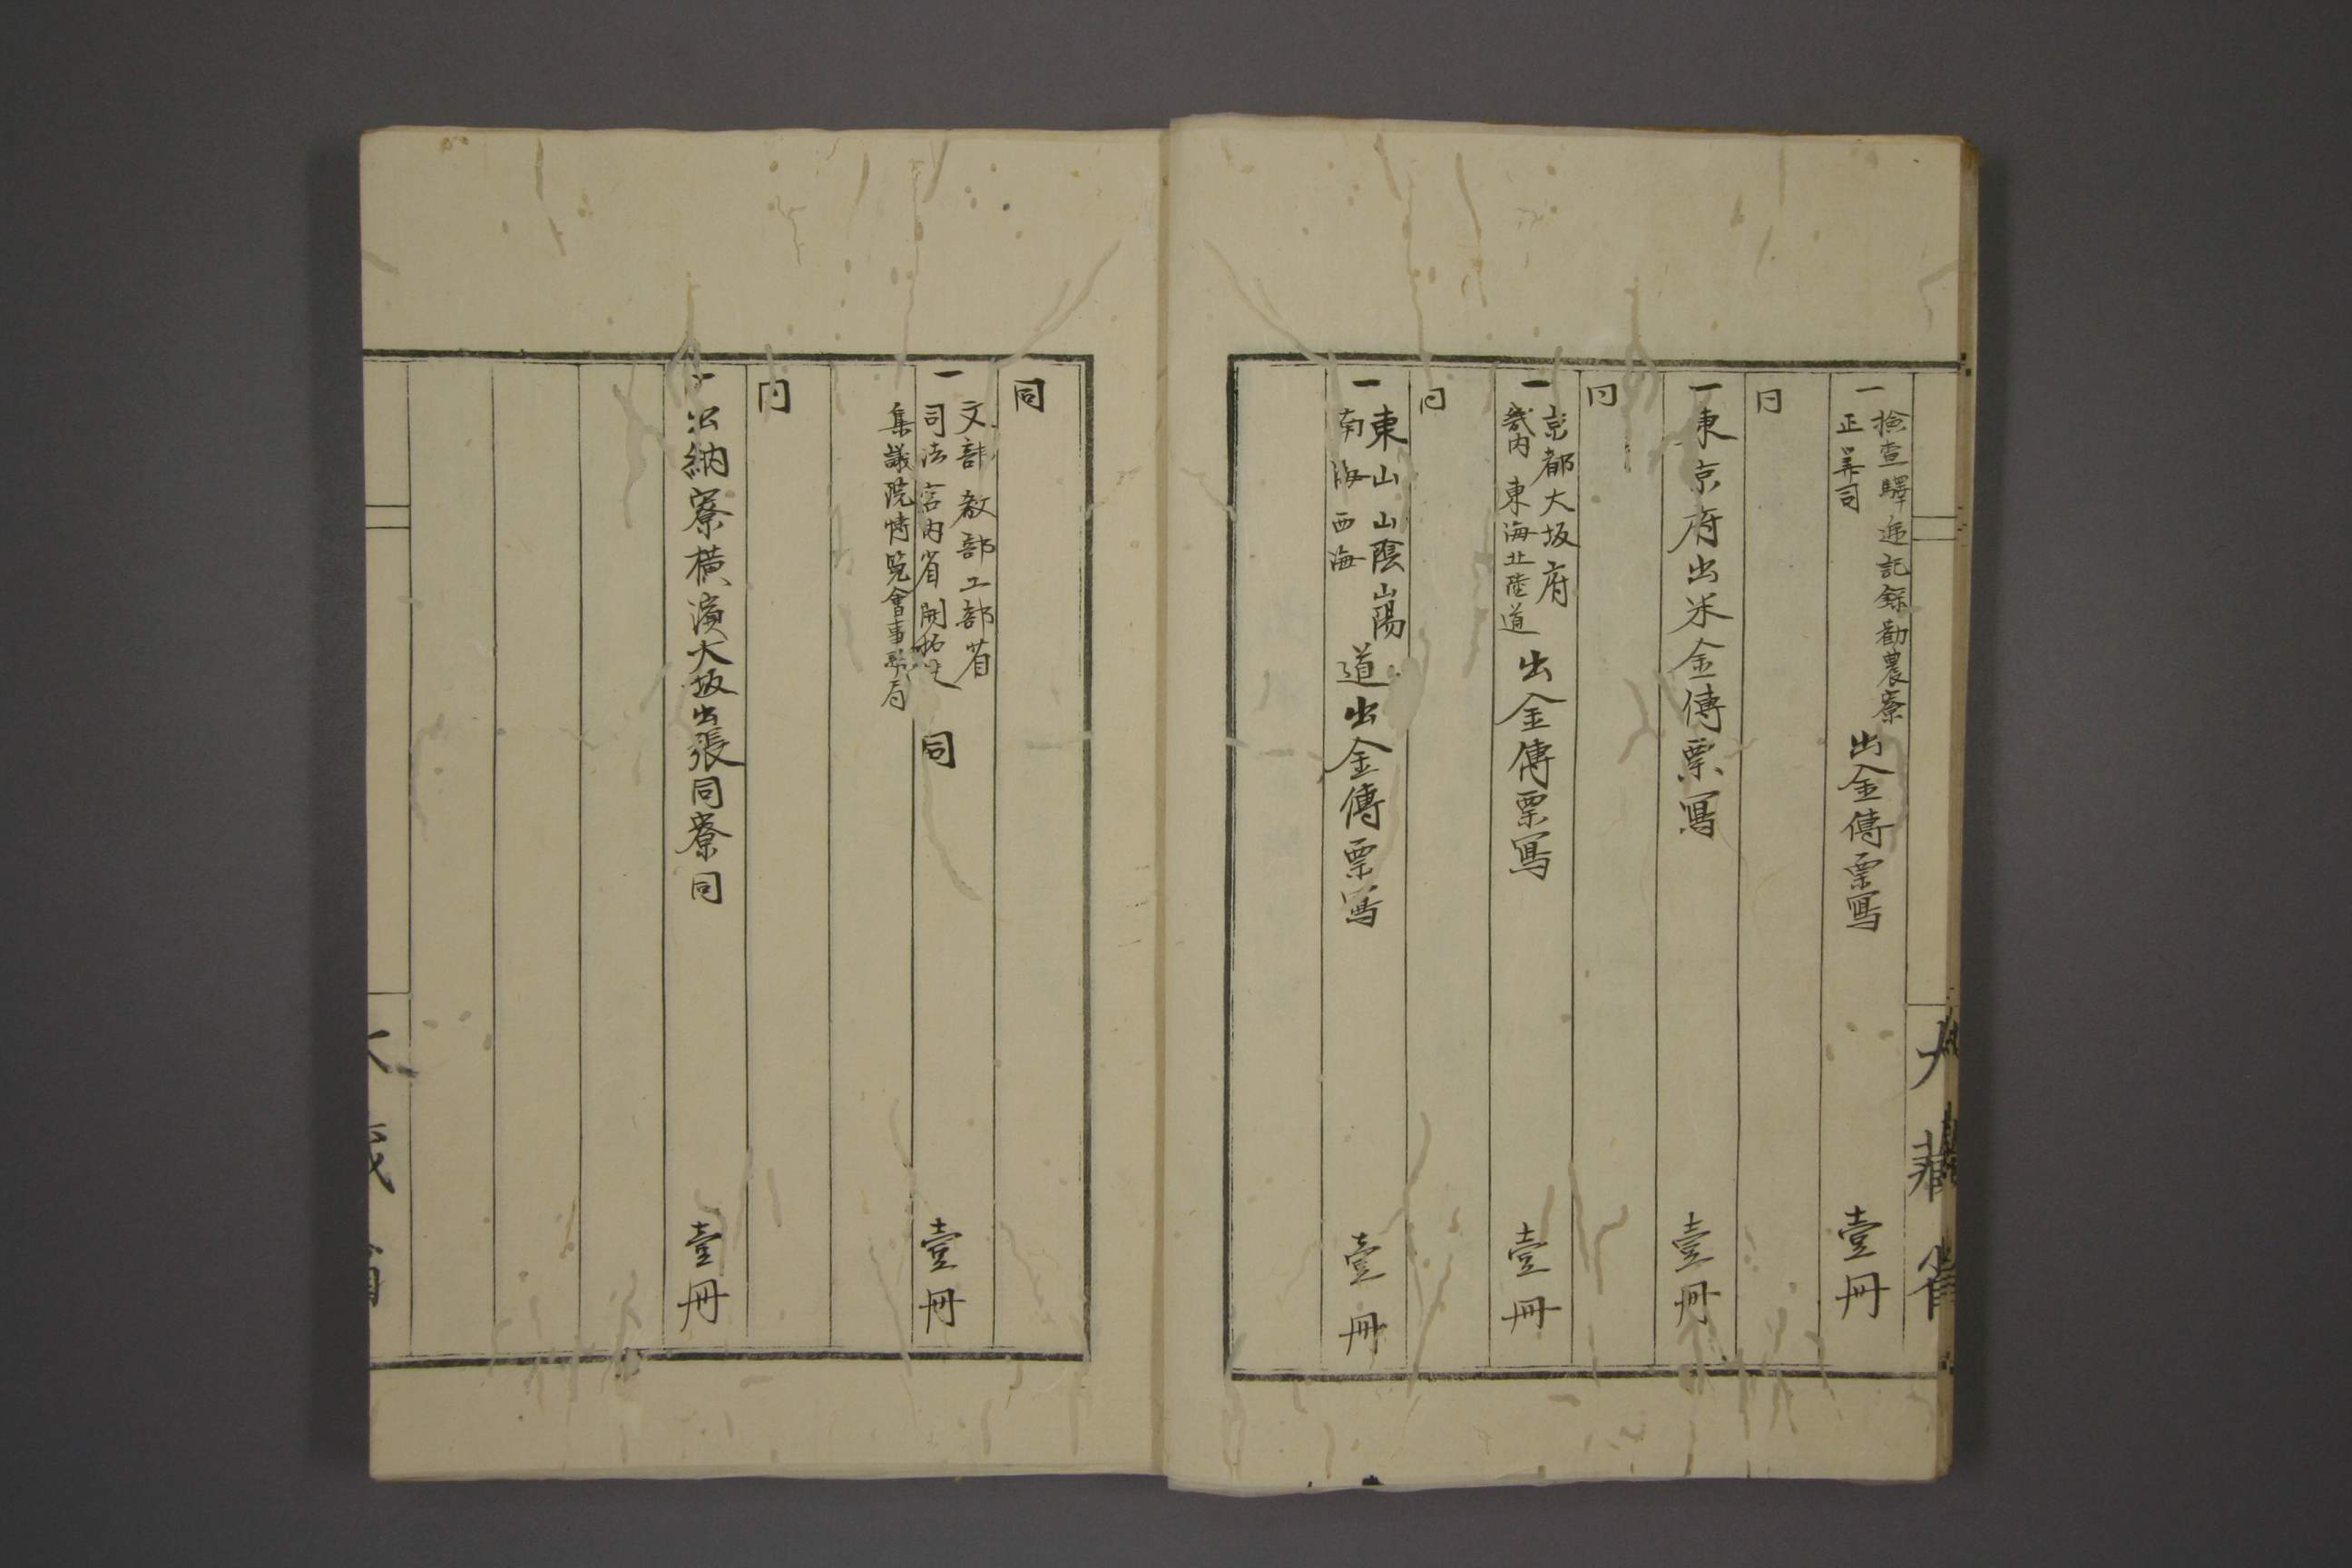 大藏省
一
檢查驛遞記録勸農寮
正算司
出金傳票寫
壹冊
同
一東京府出米金傳票寫
壹冊
同
一
京都大坂府
畿内 東海北陸道
出金傳票寫
壹冊
同
一
東山山陰山陽
南海西海
道出金傳票寫
壹冊
同
一
文部教部工部省
司法宮内省開拓使
集議院博覧會事務局
同
壹冊
同
一出納寮横濱大坂出張同寮同
壹冊